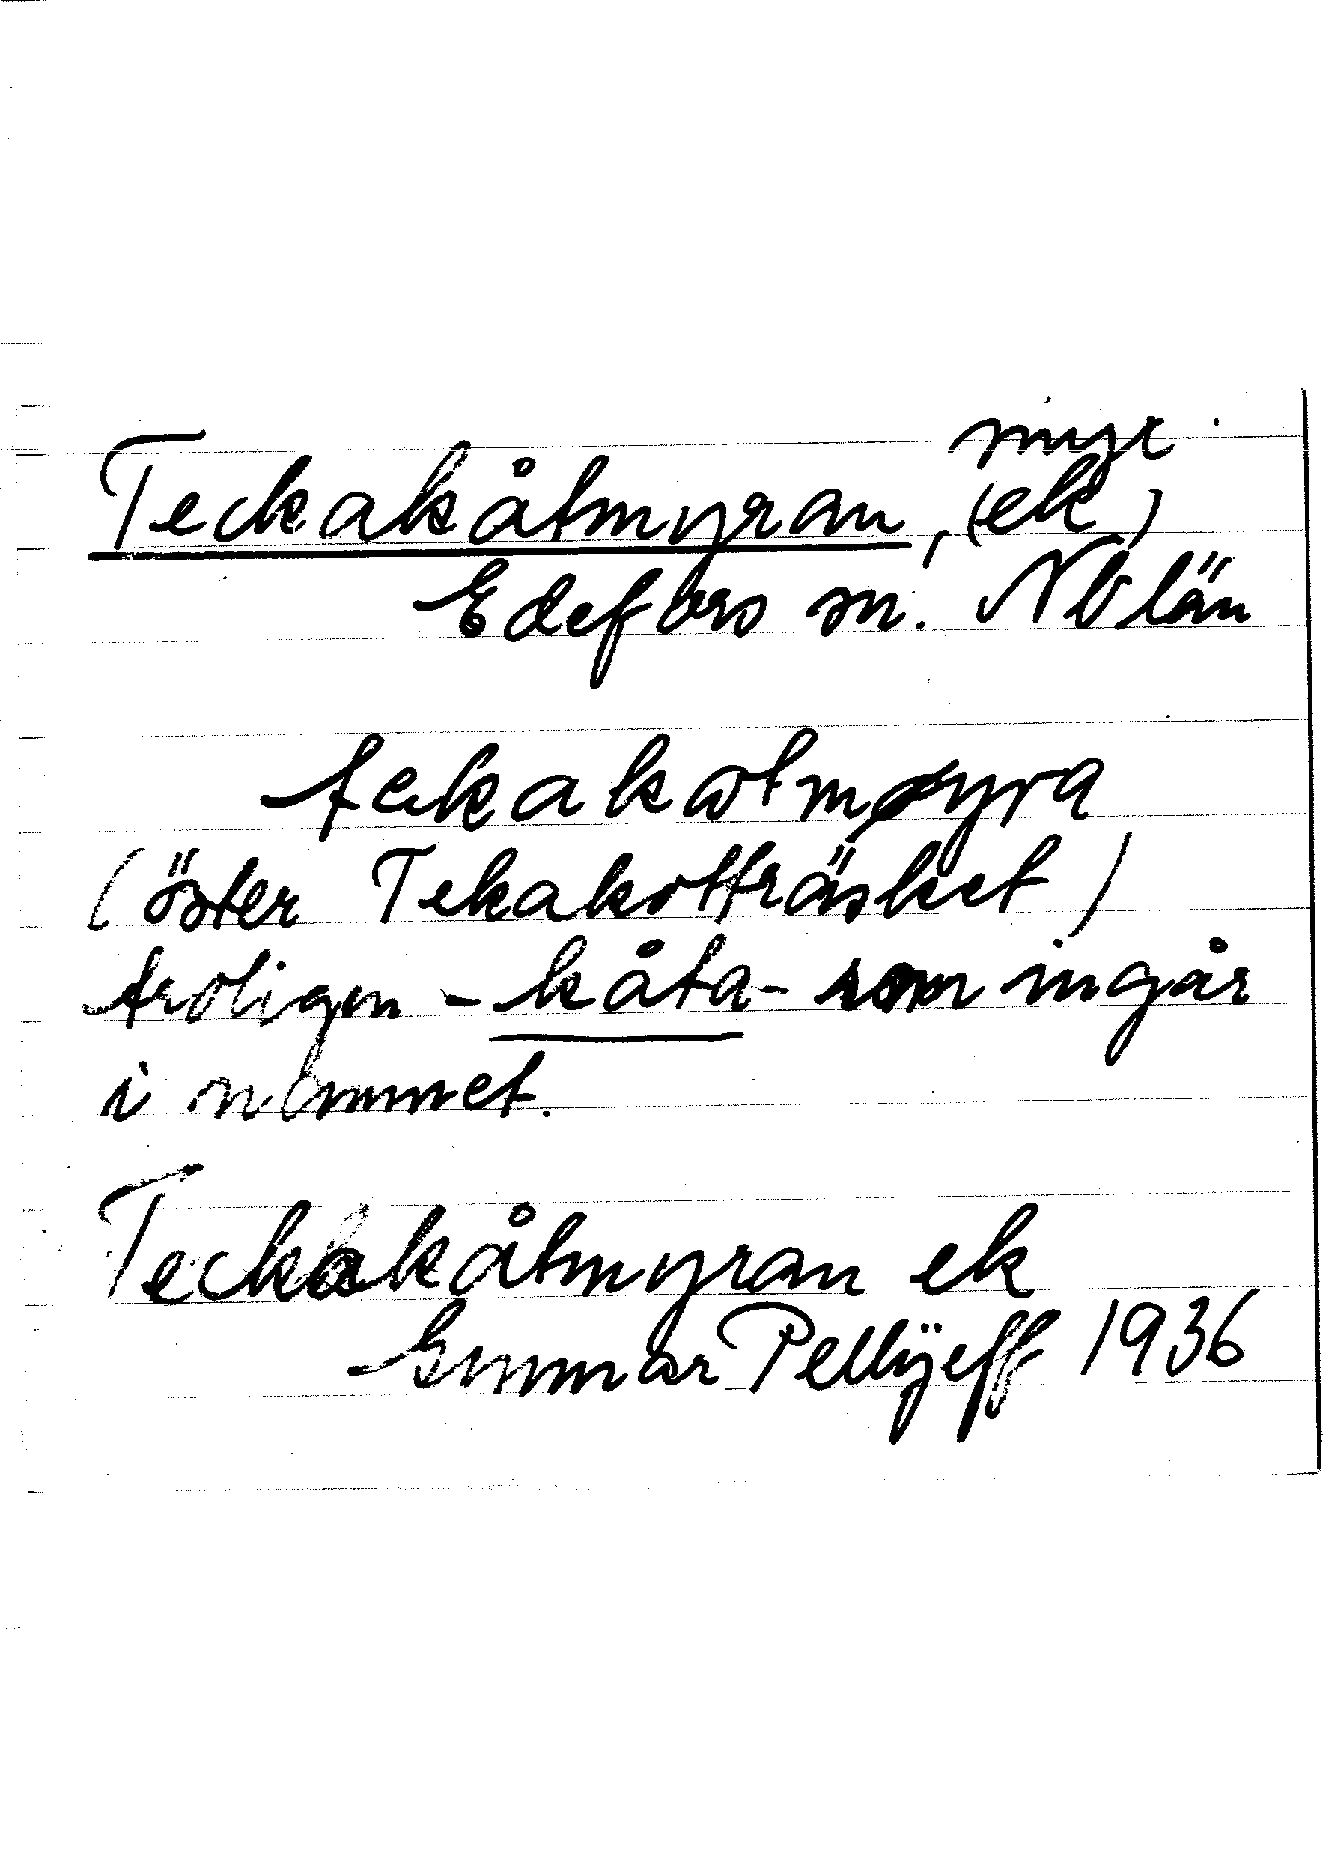 myr
Teckakåtmyran, (ek)
Edefors sn. Nb län
tekakåtmyra
(öster Tekakotträsket)
troligen - kåta - som ingår
i namnet.
Teckakåtmyran ek
Gunnar Pellijeff 1936